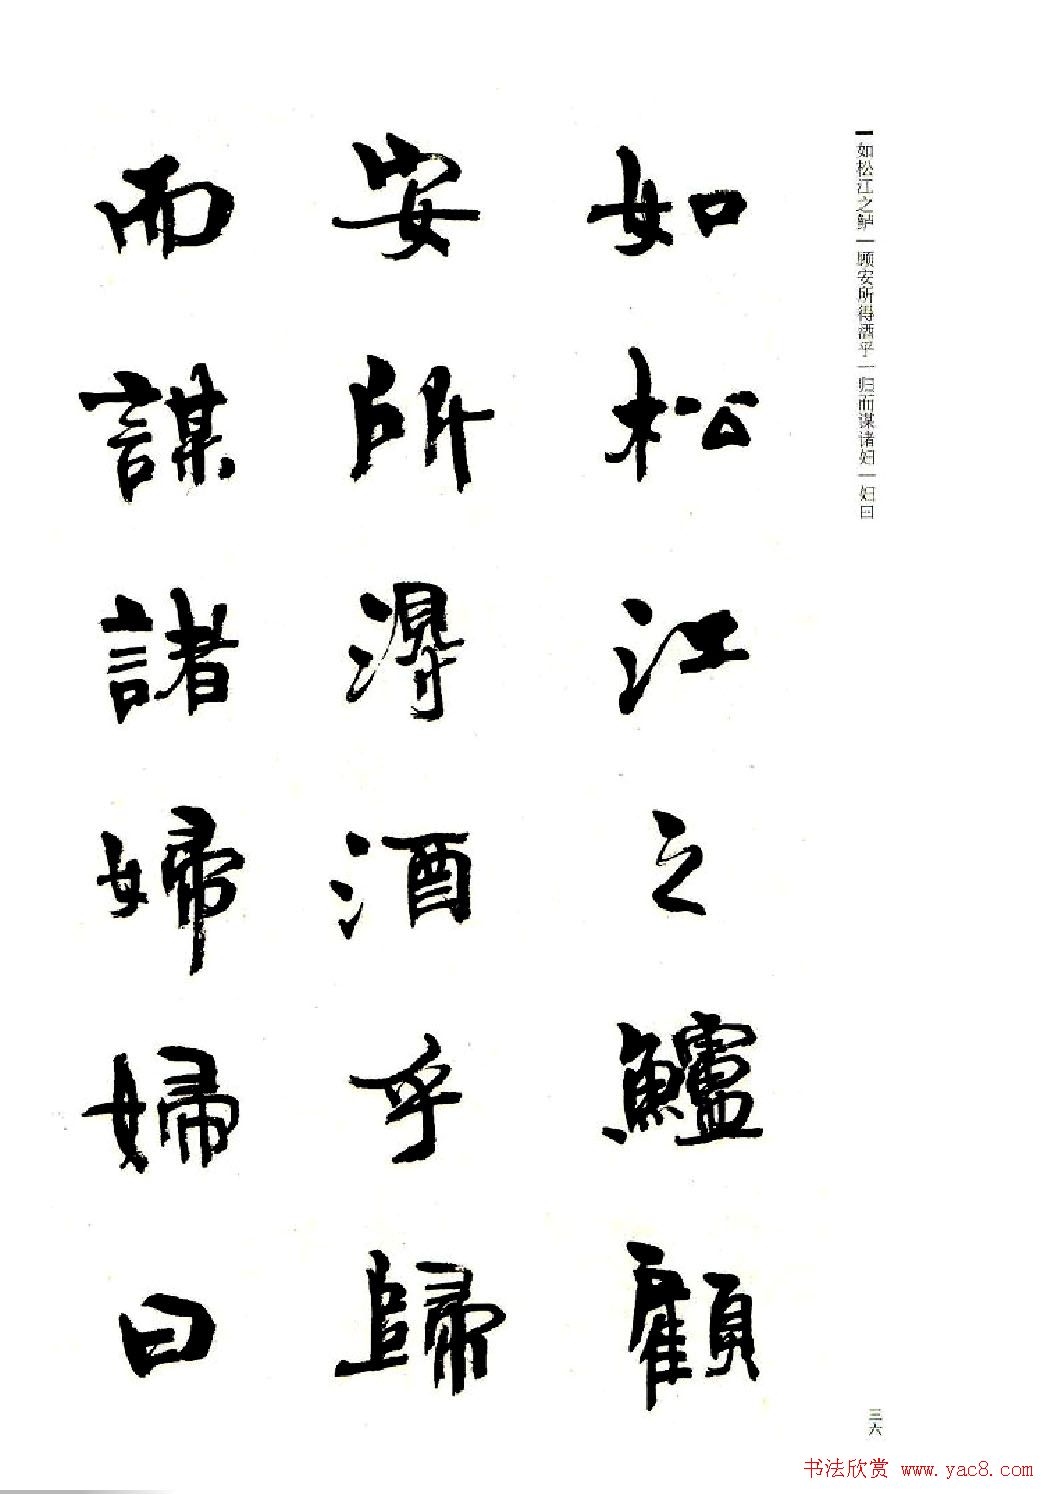 如松江之鲈 顾安所得酒乎 归而谋诸妇 妇曰
如松江之鱸顧
安所得酒乎歸
而謀諸婦婦曰
三六
书法欣赏 www.yac8.com